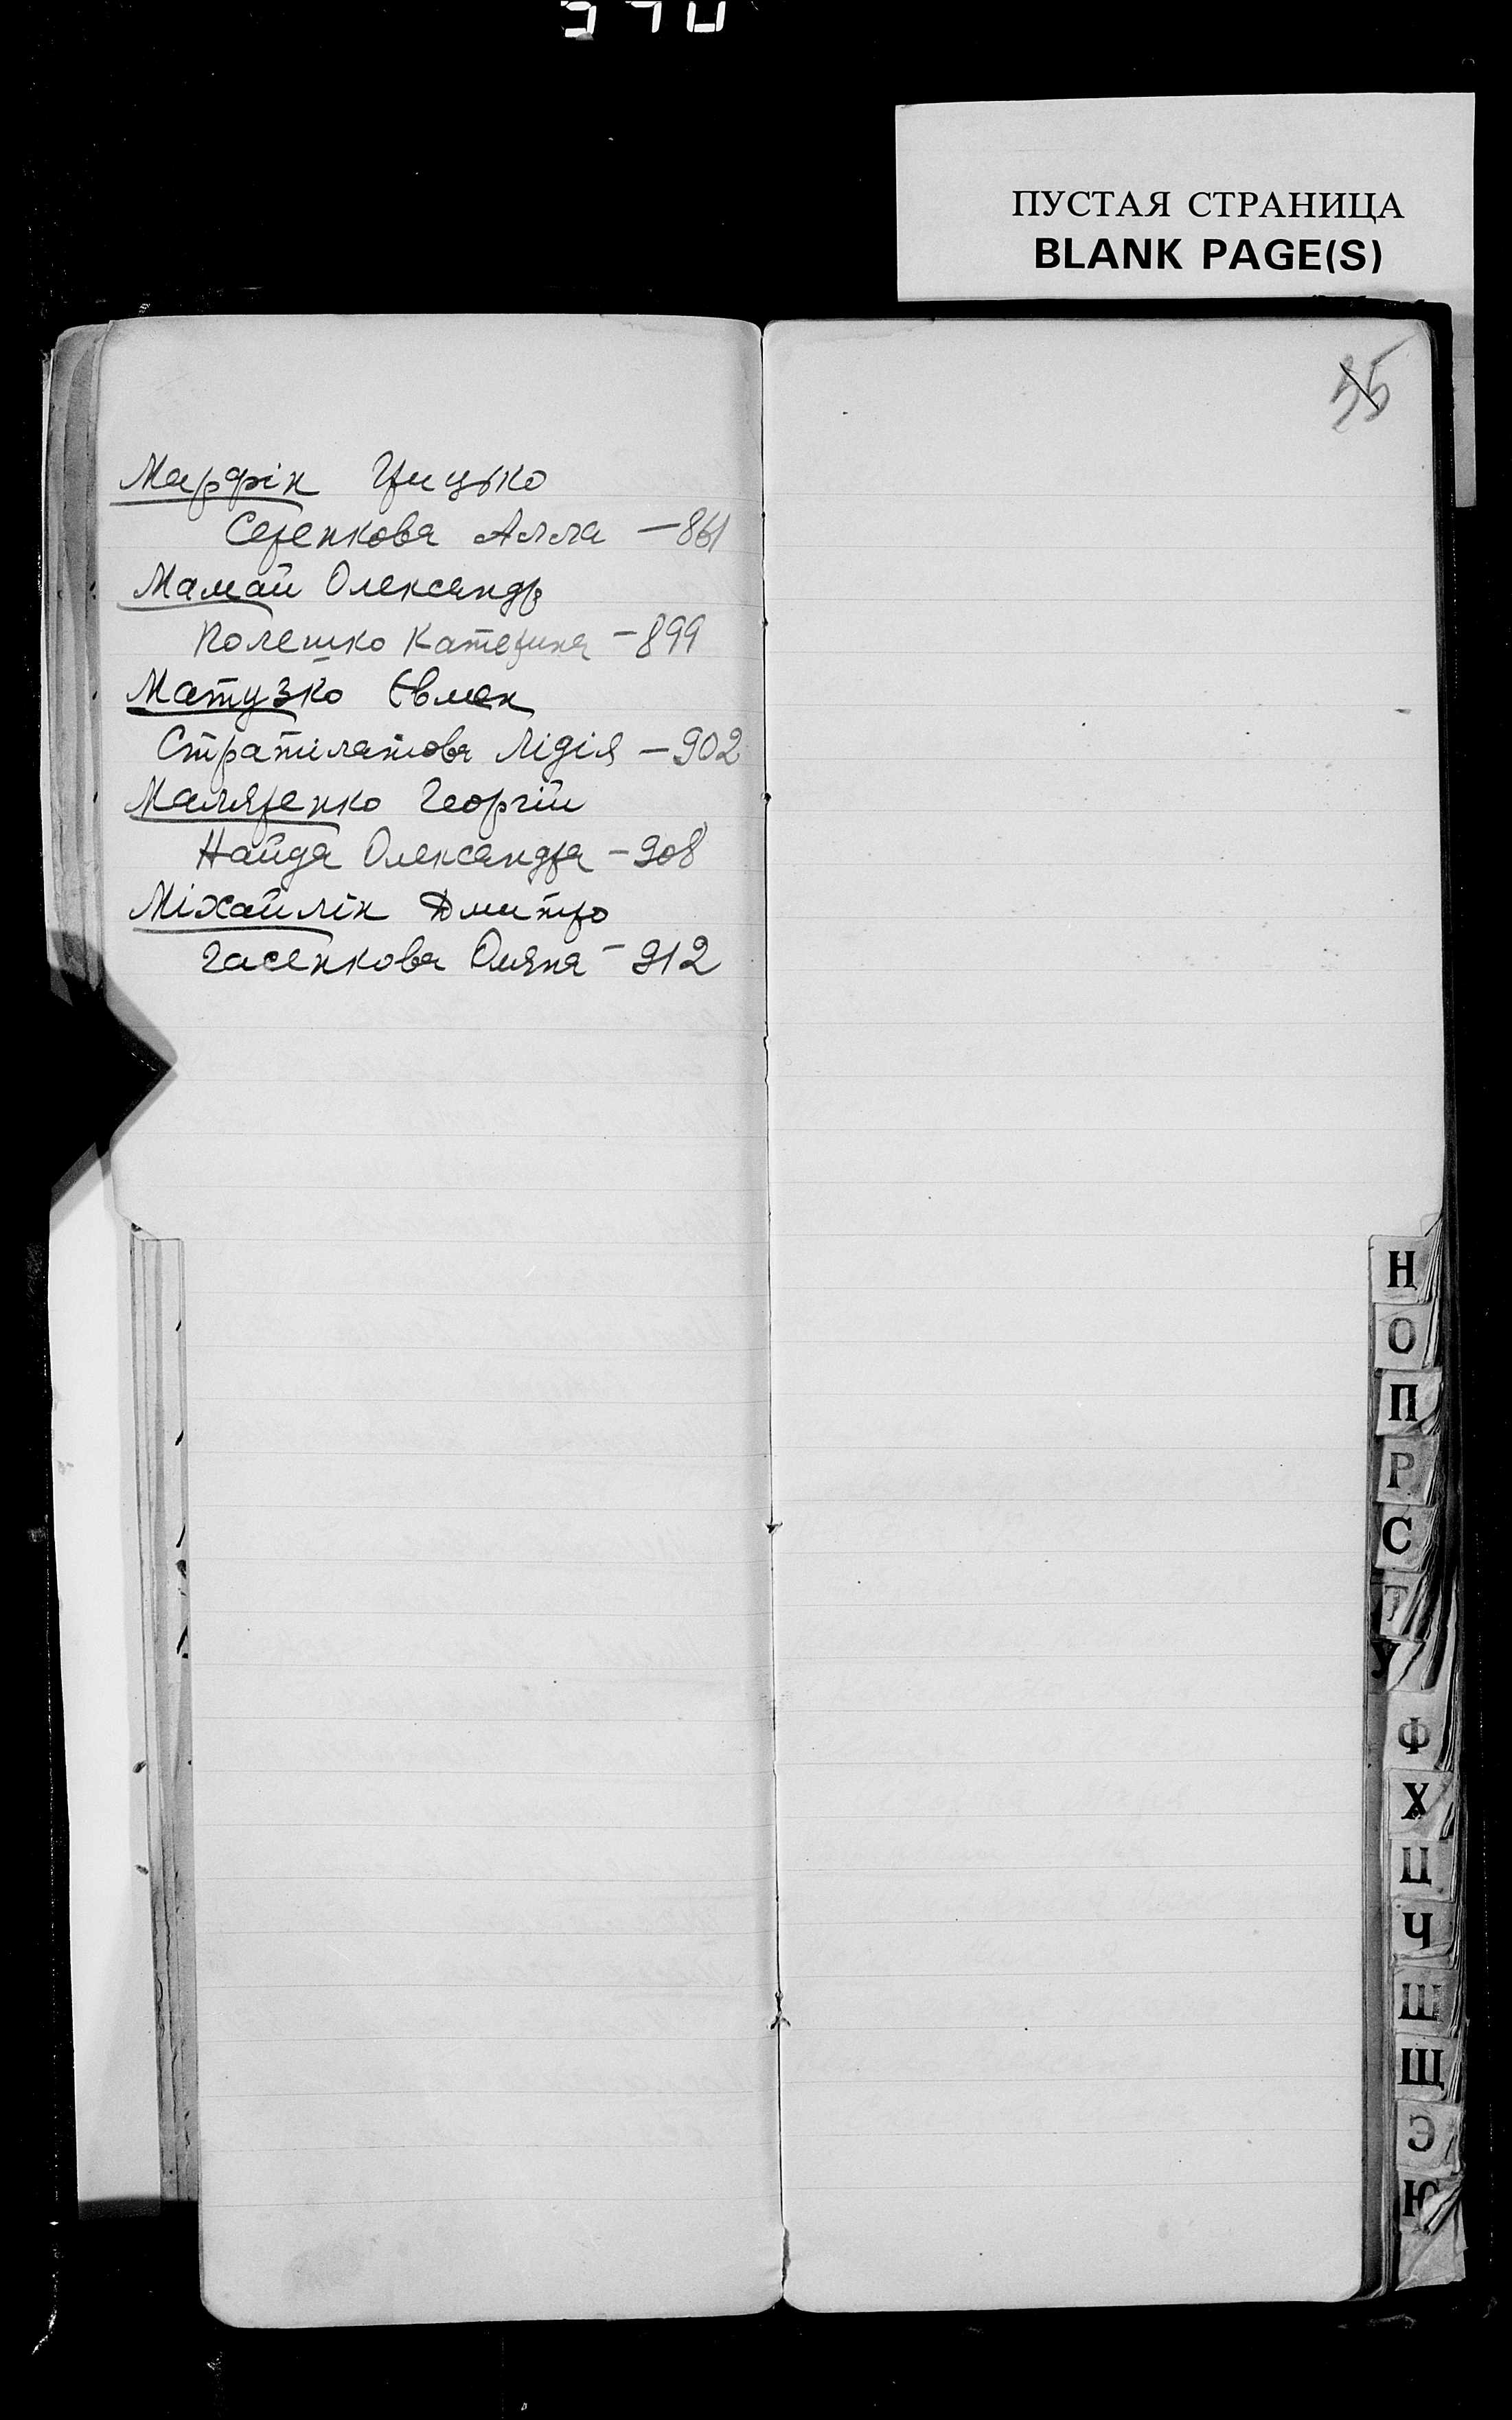 ПУСТАЯ СТРАНИЦА
BLANK PAGE(S)
35
Марфін Грицько
Серенкова Алла – 861
Мамай Олександр
Полешко Катерина – 899
Матузко Євмен
Стратилатова Лідія – 902
Маляренко Георгій
Найда Олександра – 908
Міхайлін Дмитро
Гасенкова Оляна – 912
Н
О
П
Р
С
Т
У
Ф
Х
Ц
Ч
Ш
Щ
Э
Ю